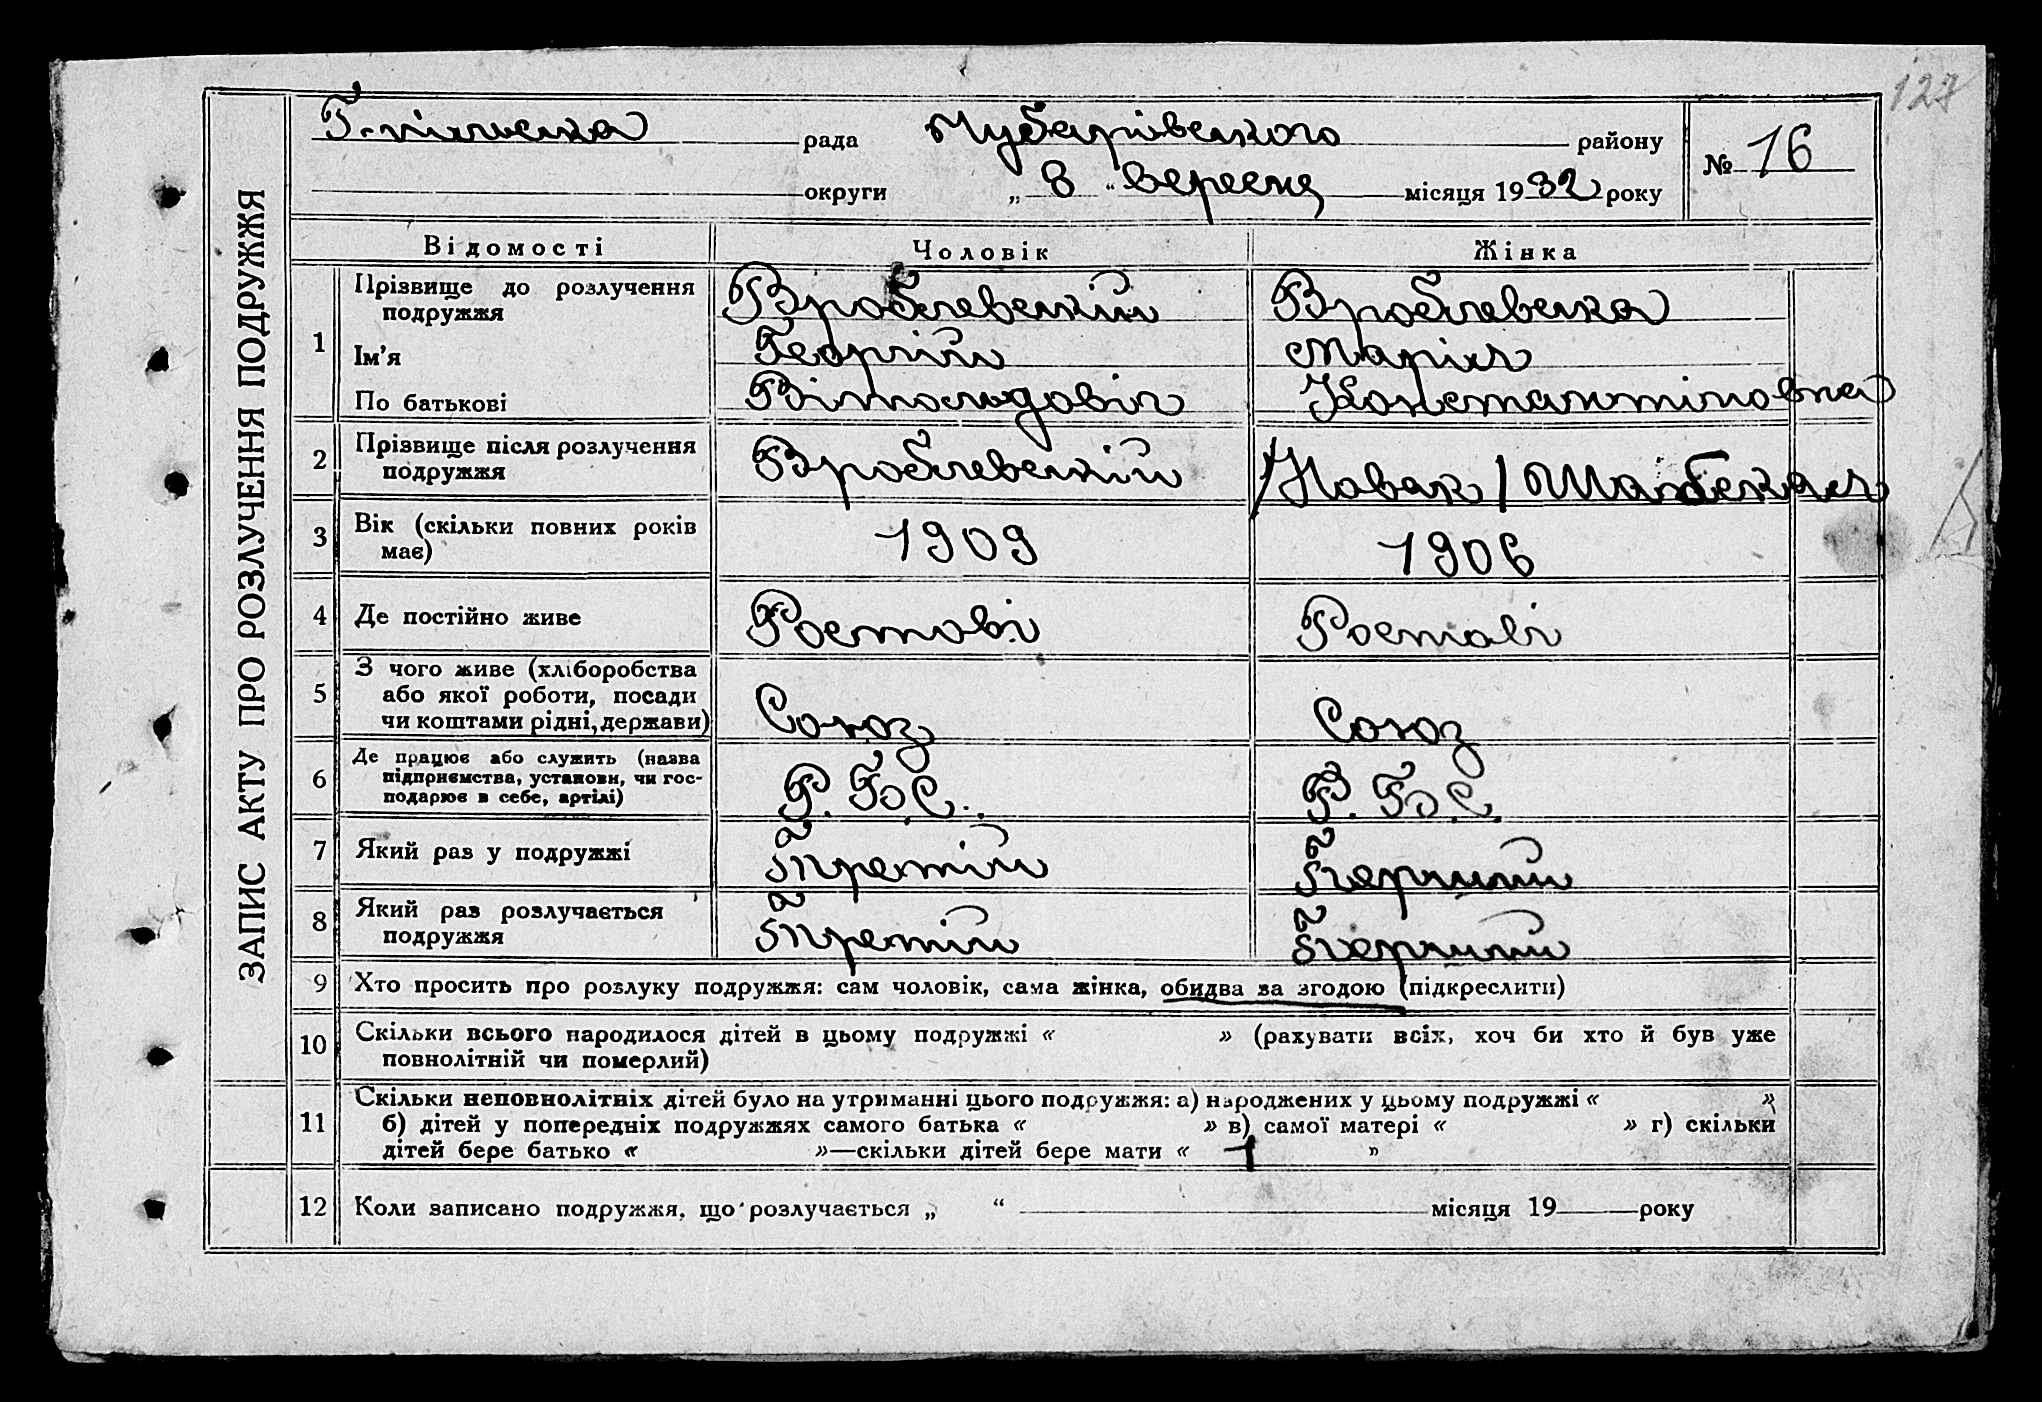 127
Г-пільська рада Чубарівського району № 16
округи „ 8 “ вересня місяця 1932 року
ЗАПИС АКТУ ПРО РОЗЛУЧЕННЯ ПОДРУЖЖЯ
Відомості Чоловік Жінка
1 Прізвище до розлучення подружжя Вроблевський Вроблевська
Ім'я Георгій Марія
По батькові Вітольдовіч Константіновна
2 Прізвище після розлучення подружжя Вроблевскій /Новак/
3 Вік (скільки повних років має) 1909 1906
4 Де постійно живе Ростові Ростові
5 З чого живе (хліборобства або якої роботи, посади чи коштами рідні, держави) Союз Союз
6 Де працює або служить (назва підприємства, установи, чи господарює в себе, артілі) Р. Б. С. Р. Б. С.
7 Який раз у подружжі Третій Перший
8 Який раз розлучається подружжя Третій Перший
9 Хто просить про розлуку подружжя: сам чоловік, сама жінка, обидва за згодою (підкреслити)
10 Скільки всього народилося дітей в цьому подружжі « » (рахувати всіх, хоч би хто й був уже
повнолітній чи померлий)
11 Скільки неповнолітніх дітей було на утриманні цього подружжя: а) народжених у цьому подружжі « »
б) дітей у попередніх подружжях самого батька « » в) самої матері « » г) скільки
дітей бере батько « »—скільки дітей бере мати « 1 »
12 Коли записано подружжя, що розлучається „ “ місяця 19 року